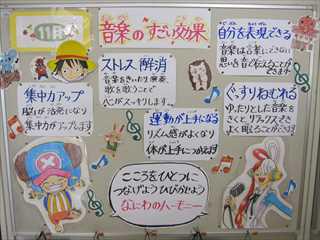 11月
音楽のすごい効果
自分を表現できる
音楽は言葉にできない
思いを音で伝えることが
できます
ストレス解消
音楽をきいたり演奏、
歌を歌うことで
心がスッキリします。
集中力アップ
脳が活発になり
集中力がアップします
運動が上手になる
リズム感がよくなり
体が上手につかえます
ぐっすりねむれる
ゆったりとした音楽を
きくと、リラックスでき
よく眠ることができます
こころをひとつに
つなげよう ひびかせよう
なにわのハーモニー